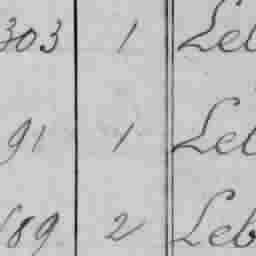 303 1 Leb
91 1 Leb
189 2 Leb